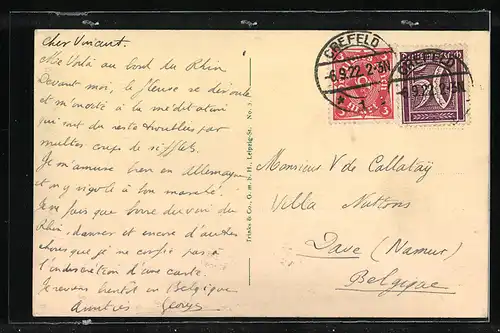 Cher Vincent.
Me voilà au bord du Rhin
Devant moi, le fleuve se déroule
et m'invite à la méditation
qui est du reste troublée par
multes coups de sifflets.
Je m'amuse bien en Allemagne
et on y rigole à bon marché.
Je ne fais que boire du vin du
Rhin, danser et encore d'autres
choses que je ne confie pas à
l'indiscrétion d'une carte.
Je reviens bientôt en Belgique
Amitiés Georges
Trinks & Co., G. m. b. H., Leipzig-St. No. 3.
CREFELD
-6.9.22. 2-3N
* 1
CREFELD
-6.9.22. 2-3N
Monsieur V de Callataÿ
Villa
Dave (Namur)
Belgique